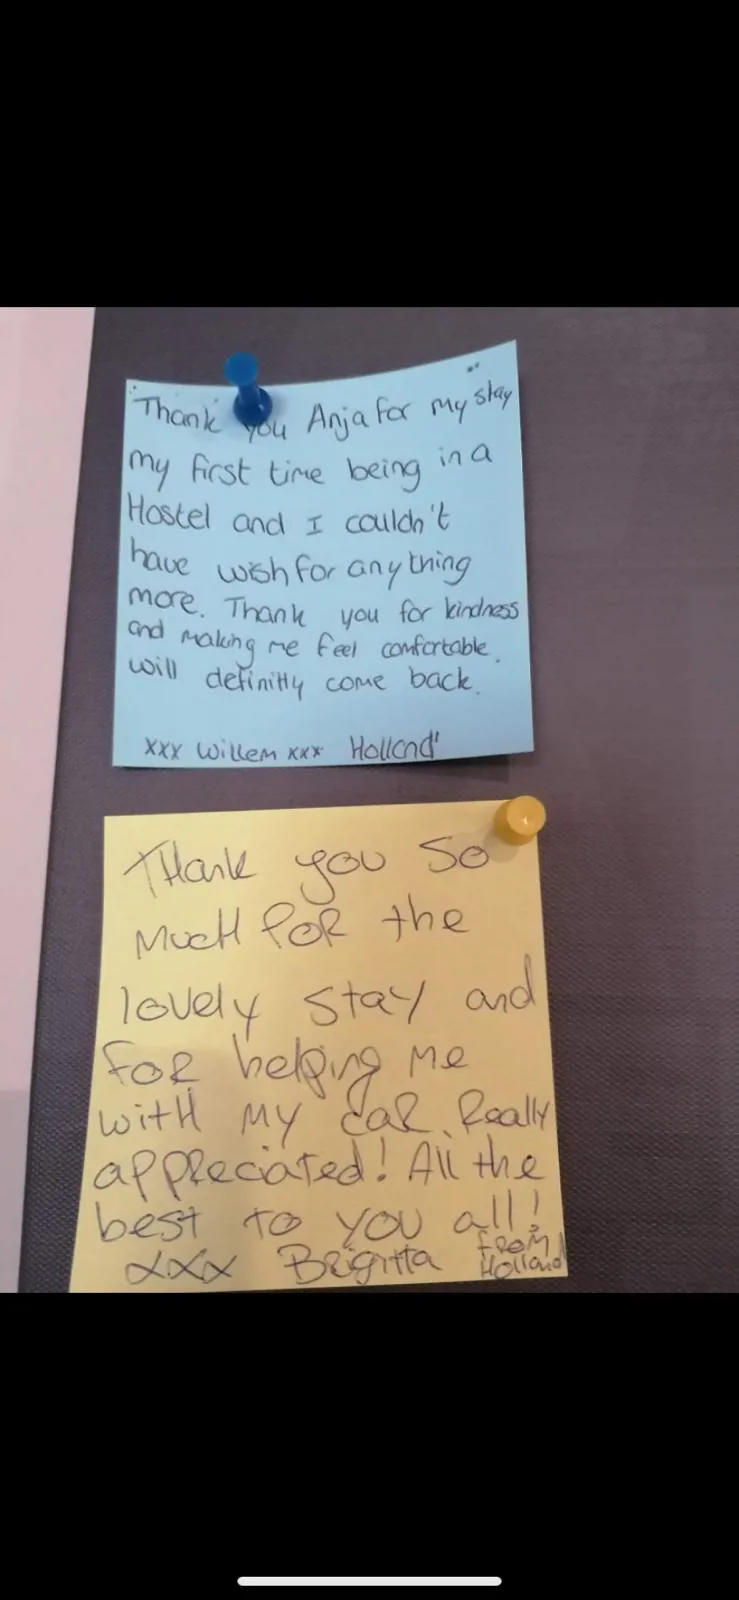 Thank you Anja for my stay
my first time being in a
Hostel and I couldn't
have wish for anything
more. Thank you for kindness
and making me feel comfortable.
will definitly come back.
xxx Willem xxx Holland
THank you So
MucH foR the
lovely stay and
foR helping me
witH my caR. Really
appReciated! All the
best to you all!
xxx BRigitta fROM
Holland